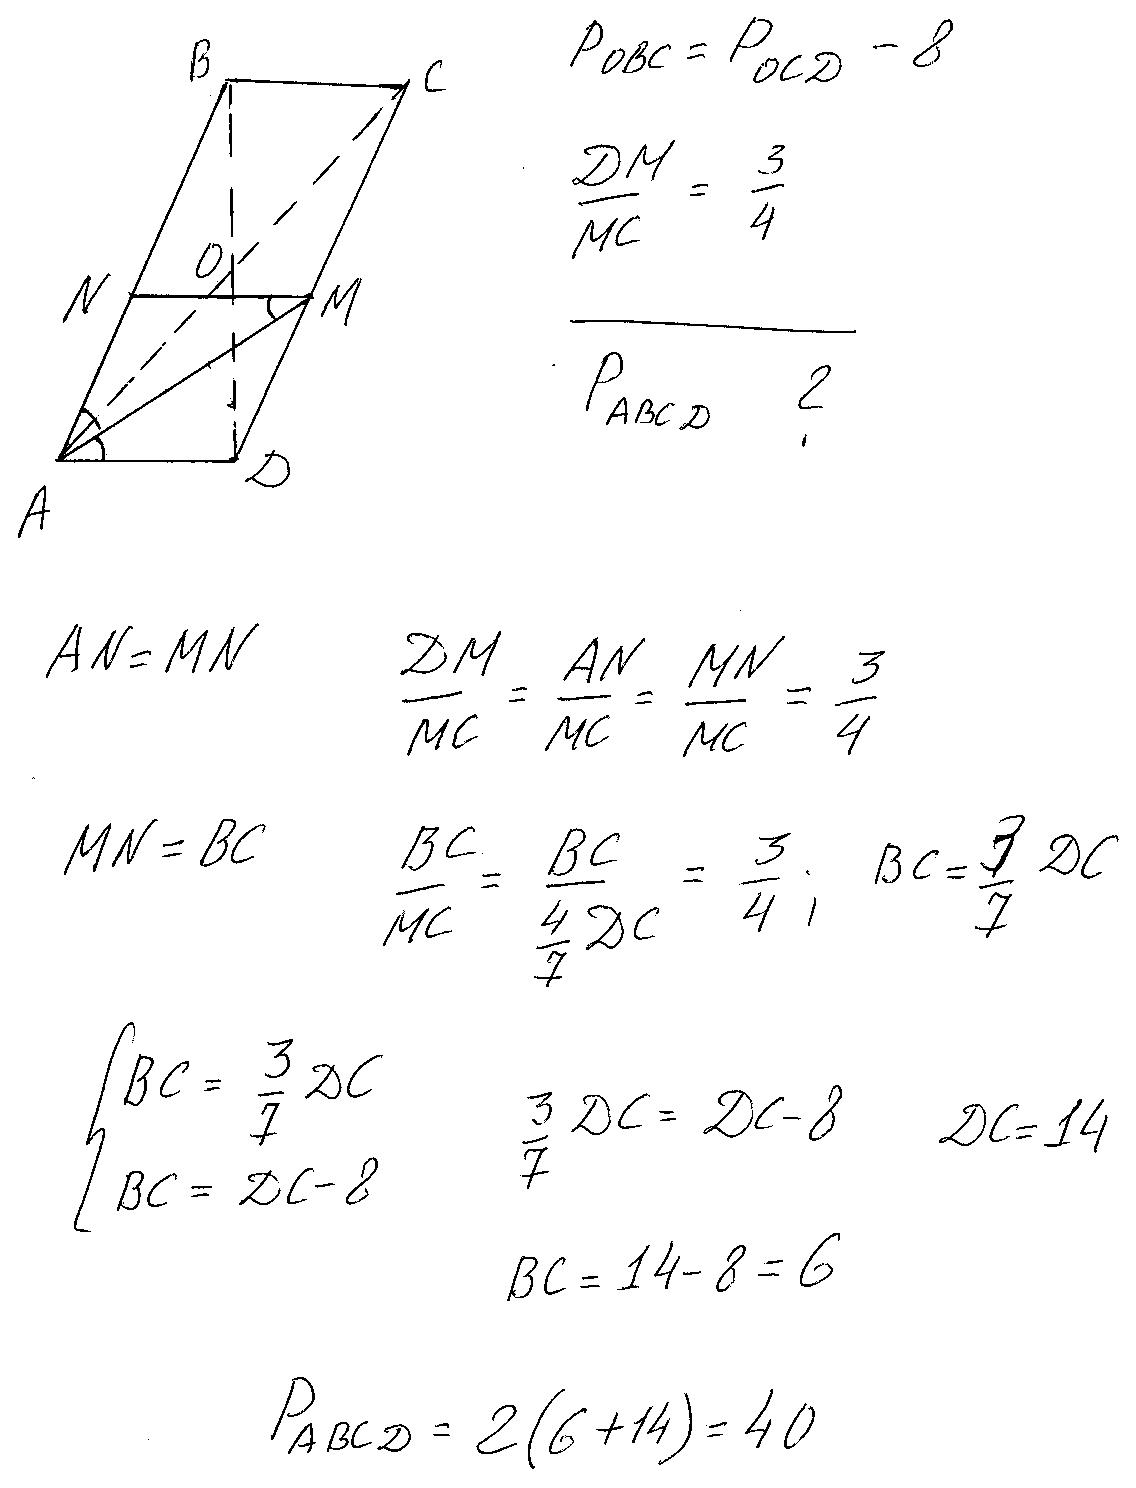 B
C
O
N
M
A
D
P_OBC = P_OCD - 8
DM/MC = 3/4
P_ABCD ?
AN = MN DM/MC = AN/MC = MN/MC = 3/4
MN = BC BC/MC = BC/(4/7 DC) = 3/4; BC = 3/7 DC
{ BC = 3/7 DC
BC = DC - 8
3/7 DC = DC - 8 DC = 14
BC = 14 - 8 = 6
P_ABCD = 2(6 + 14) = 40